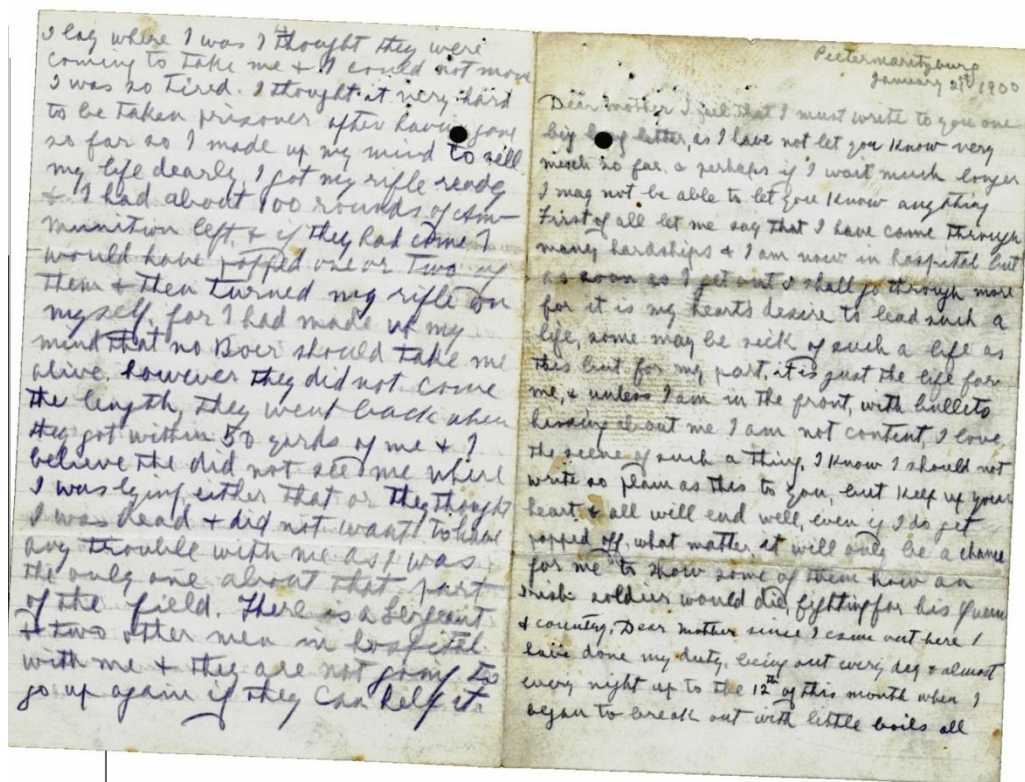 I lay where I was I thought they were
coming to take me & I could not move
I was so tired. I thought it very hard
to be taken prisoner after having gone
so far so I made up my mind to sell
my life dearly, I got my rifle ready
& I had about 100 rounds of Am-
munition left & if they had come I
would have popped one or two of
them & then turned my rifle on
myself, for I had made up my
mind that no Boer should take me
alive. however they did not come
the length, they went back when
they got within 50 yards of me & I
believe the did not see me where
I was lying either that or they thought
I was dead & did not want to have
any trouble with me as I was
the only one about that part
of the field. There is a Sergeant
& two other men in hospital
with me & they are not going to
go up again if they can help it.
Pietermaritzburg
January 21st 1900
Dear mother I feel that I must write to you one
big long letter, as I have not let you know very
much so far. & perhaps if I wait much longer
I may not be able to let you know anything
First of all let me say that I have come through
many hardships & I am now in hospital but
as soon as I get out I shall go through more
for it is my hearts desire to lead such a
life, some may be sick of such a life as
this but for my part, it is just the life for
me, & unless I am in the front, with bullets
hissing about me I am not content, I love
the scene of such a thing, I know I should not
write so plain as this to you, but keep up your
heart & all will end well, even if I do get
popped off. what matter it will only be a chance
for me to show some of them how an
Irish soldier would die, fighting for his Queen
& country, Dear mother since I came out here I
have done my duty. being out every day & almost
every night up to the 12th of this month when I
began to break out with little boils all